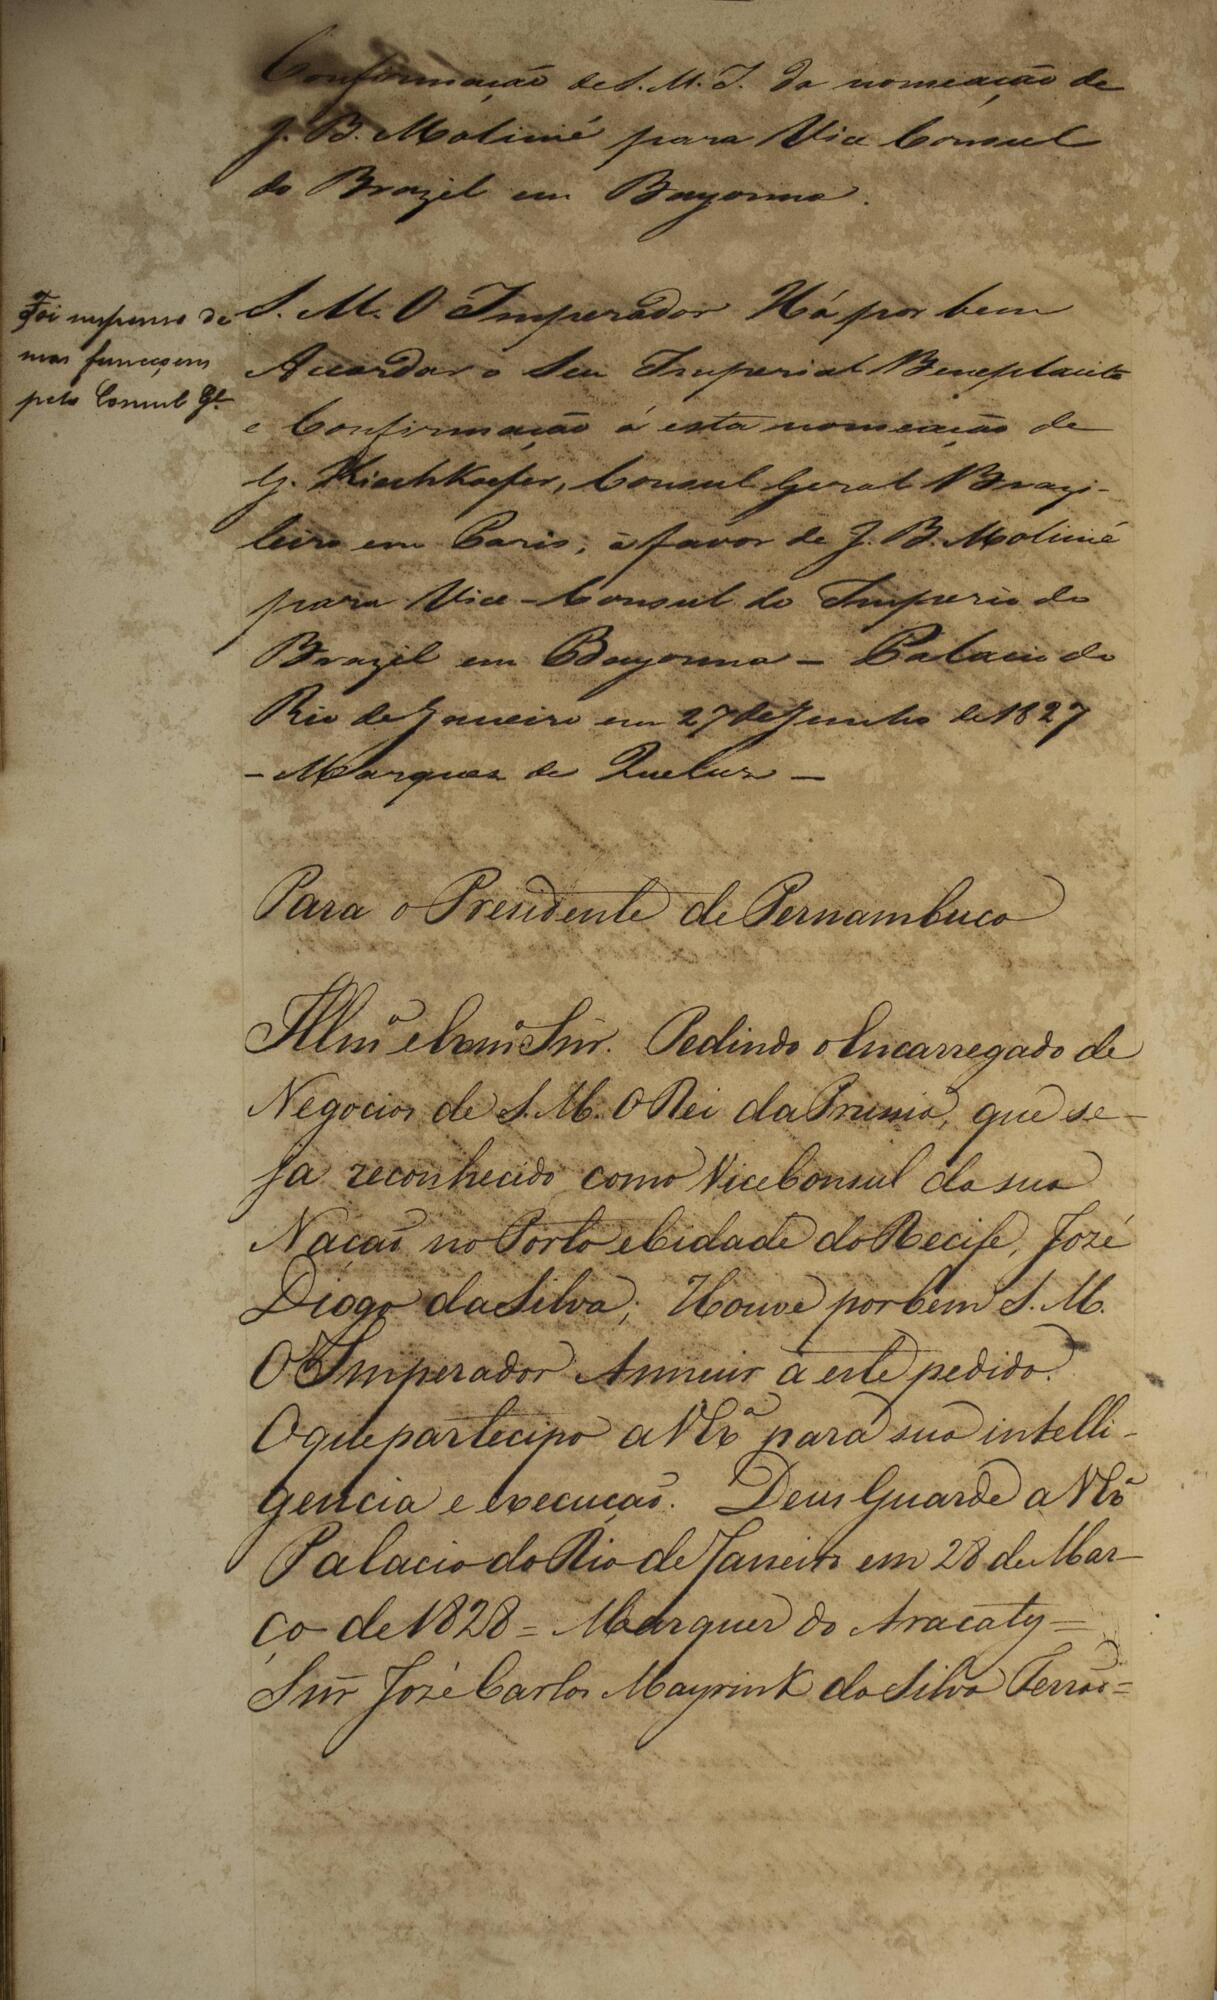 Confirmação de S. M. I. da nomeação de
J. B. Molimié para Vice Consul
do Brazil em Bayonna.
Foi suspenso de
suas funcçoens
pelo Consul Gl.
S. M. O Imperador Há por bem
Accordar o Seu Imperial Beneplacito
e Confirmação á esta nomeação de
G. Kieckhoefer, Consul Geral Brazi-
leiro em Paris, à favor de J. B. Molimié
para Vice-Consul do Imperio do
Brazil em Bayonna — Palacio do
Rio de Janeiro em 27 de Junho de 1827
— Marquez de Queluz —
Para o Presidente de Pernambuco
Illmº e Exmº Snr. Pedindo o Encarregado de
Negocios de S. M. O Rei da Prussia, que se-
ja reconhecido como Vice Consul da sua
Nação no Porto e Cidade do Recife, Jozé
Diogo da Silva; Houve por bem S. M.
O Imperador Annuir à este pedido.
O que partecipo a V Exª para sua intelli-
gencia e execução. Deus Guarde a V Exª
Palacio do Rio de Janeiro em 28 de Mar-
ço de 1828 = Marquez do Aracaty =
Snr Jozé Carlos Mayrink da Silva Ferrão =